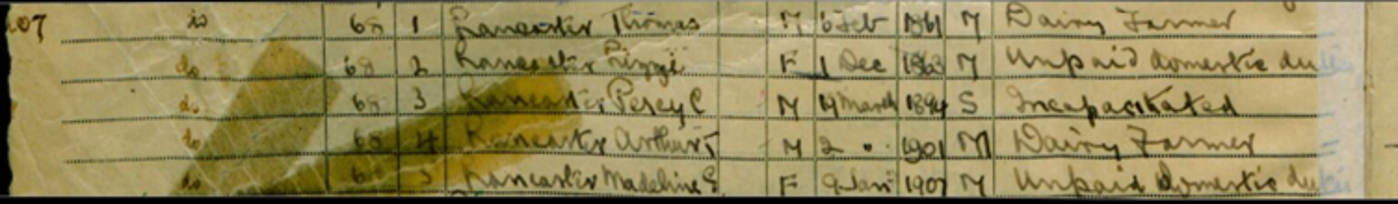 207 do 68 1 Lancaster Thomas M 6 Feb 1861 M Dairy Farmer
do 68 2 Lancaster Lizzie F 1 Dec 1863 M Unpaid domestic du
do 68 3 Lancaster Percy C M March 1894 S Incapacitated
do 68 4 Lancaster Arthur T M 2 " 1901 M Dairy Farmer
do 68 5 Lancaster Madeline E F 9 Jan 1907 M Unpaid Domestic du